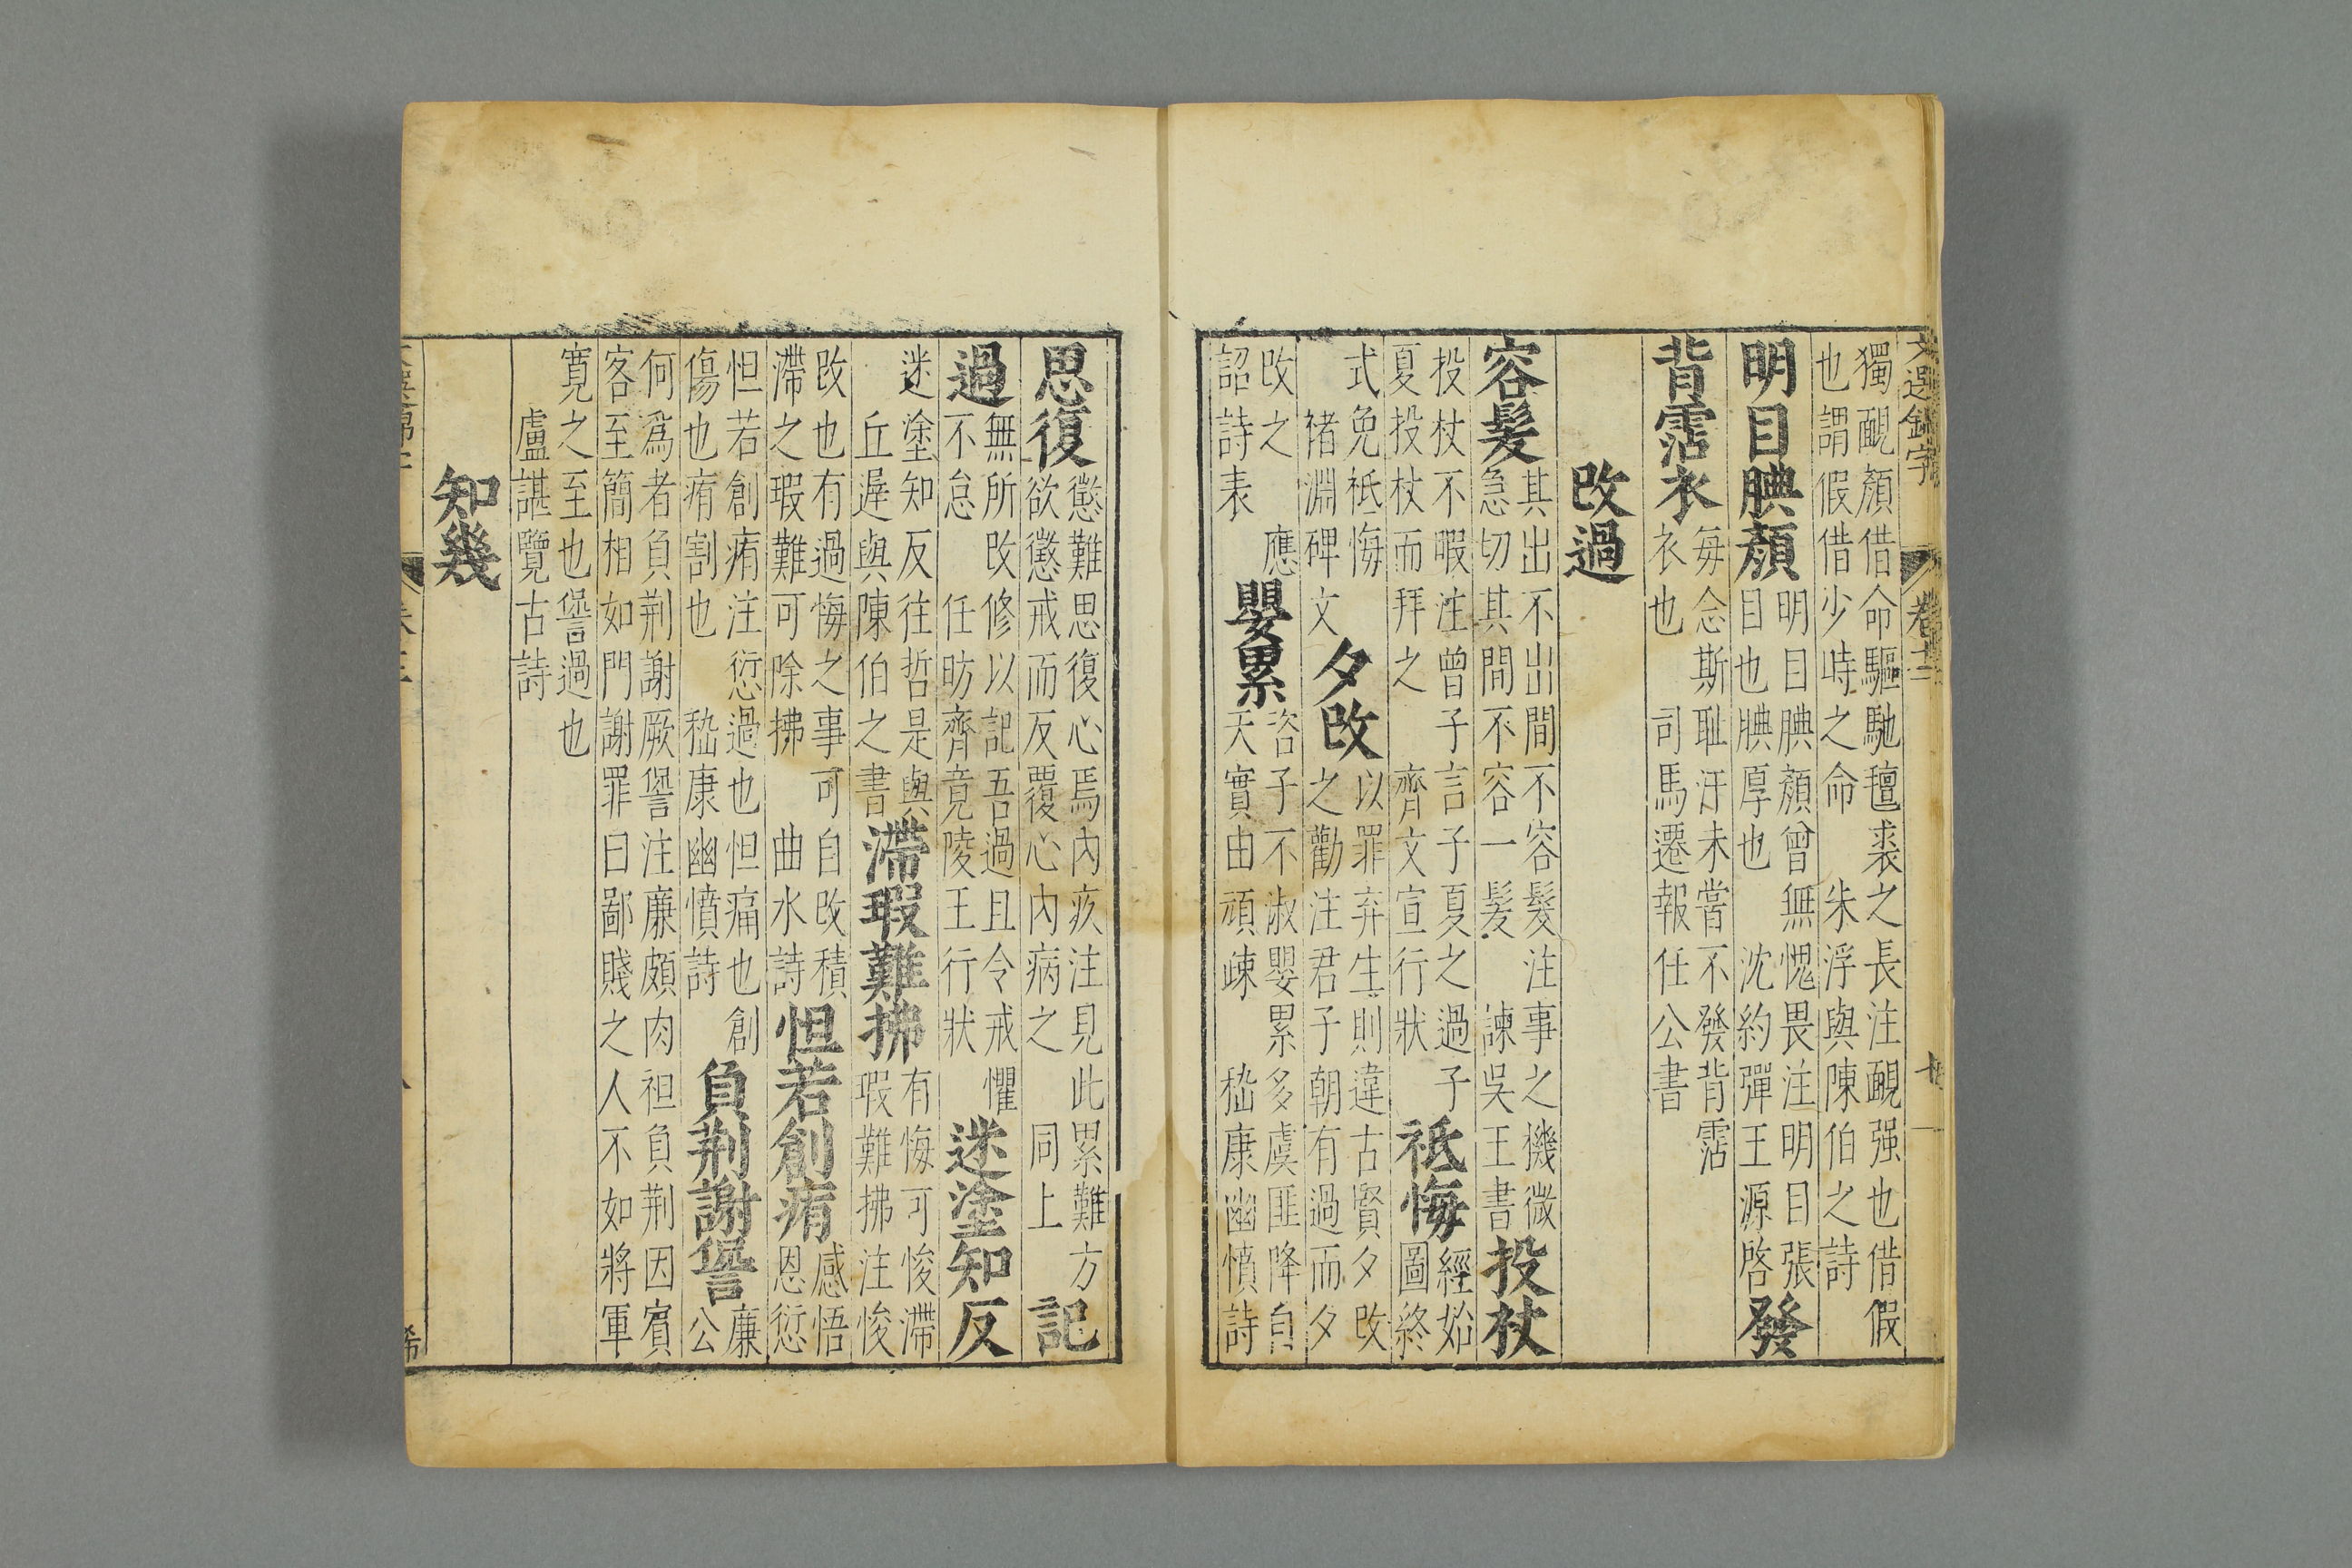 文選錦字 卷十二
獨靦顏借命驅馳氊裘之長注靦强也借假
也謂假借少時之命 朱浮與陳伯之詩
明目腆顏
明目腆顏曾無愧畏注明目張
目也腆厚也 沈約彈王源啓
發
背霑衣
每念斯耻汗未嘗不發背霑
衣也 司馬遷報任公書
改過
容髮
其出不出間不容髮注事之機微
急切其間不容一髮 諫吳王書
投杖
投杖不暇注曾子言子夏之過子
夏投杖而拜之 齊文宣行狀
祇悔
經始
圖終
式免祇悔
褚淵碑文
夕改
以罪弃生則違古賢夕改
之勸注君子朝有過而夕
改之 應
詔詩表
嬰累
咨子不淑嬰累多虞匪降自
天實由頑疎 嵇康幽憤詩
思復
懲難思復心焉內疚注見此累難方
欲懲戒而反覆心內病之 同上
記
過
無所改修以記吾過且令戒懼
不怠 任昉齊竟陵王行狀
迷塗知反
迷塗知反往哲是與
丘遲與陳伯之書
滯瑕難拂
有悔可悛滯
瑕難拂注悛
改也有過悔之事可自改積
滯之瑕難可除拂 曲水詩
怛若創痏
感悟
恩愆
怛若創痏注愆過也怛痛也創
傷也痏割也 嵇康幽憤詩
負荆謝諐
廉
公
何爲者負荆謝厥諐注廉頗肉袒負荆因賓
客至簡相如門謝罪曰鄙賤之人不如將軍
寬之至也諐過也
盧諶覽古詩
知幾